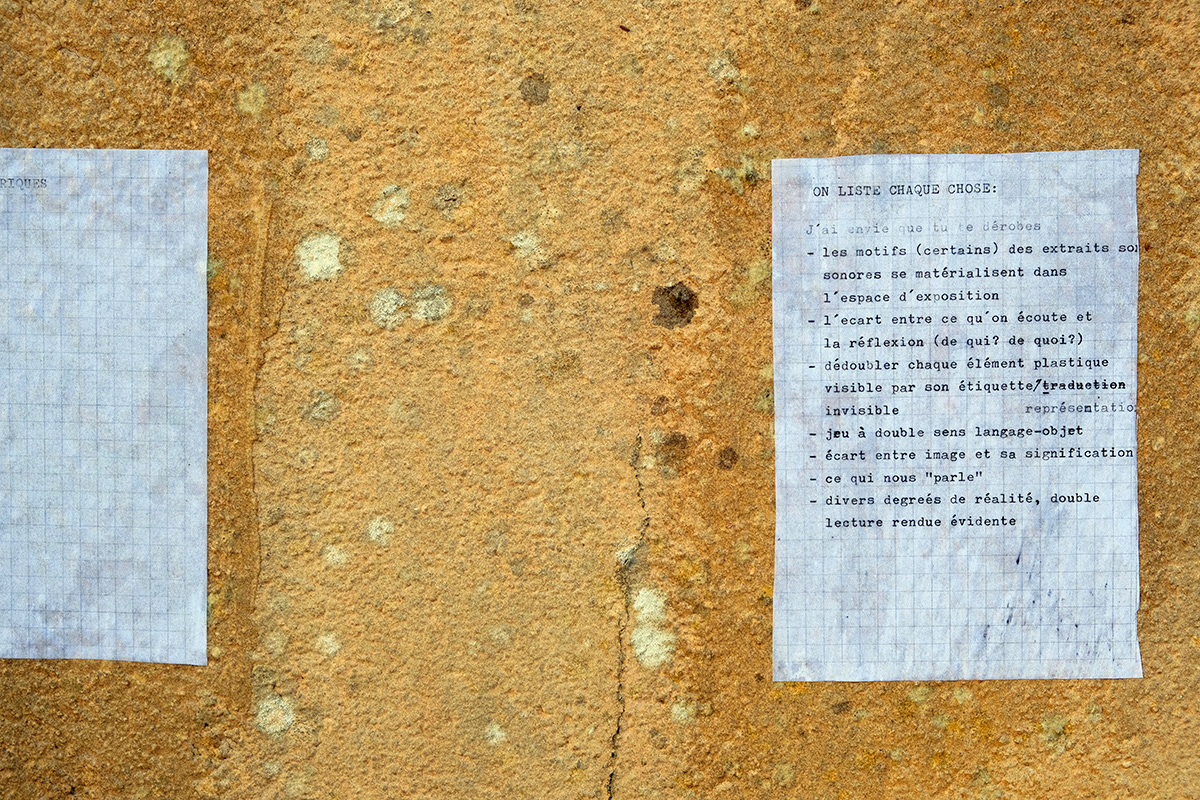 RIQUES
ON LISTE CHAQUE CHOSE:
J´ai envie que tu te dérobes
- les motifs (certains) des extraits son
sonores se matérialisent dans
l´espace d´exposition
- l´ecart entre ce qu´on écoute et
la réflexion (de qui? de quoi?)
- dédoubler chaque élément plastique
visible par son étiquette/traduction
invisible représentatio
- jeu à double sens langage-objet
- écart entre image et sa signification
- ce qui nous "parle"
- divers degreés de réalité, double
lecture rendue évidente